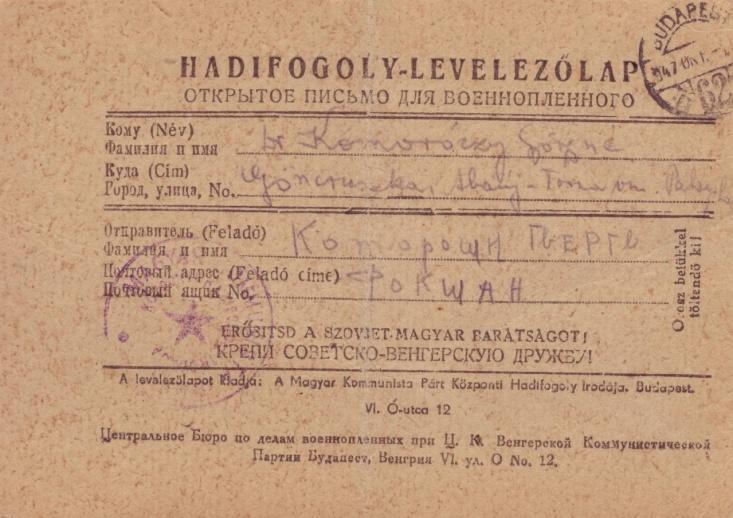 BUDAPEST
947 OKT.
62
HADIFOGOLY-LEVELEZŐLAP
ОТКРЫТОЕ ПИСЬМО ДЛЯ ВОЕННОПЛЕННОГО
Кому (Név) Dr Komoróczy Györgyné
Фамилия и имя
Куда (Cím) Göncruszka, Abaúj-Torna vm.
Город, улица, No.
Отправитель (Feladó) Коморощи Гьергь
Фамилия и имя
Почтовый адрес (Feladó címe) ФОКШАН
Почтовый ящик No.
Orosz betükkel
töltendő ki!
ERŐSITSD A SZOVJET-MAGYAR BARÁTSÁGOT!
КРЕПИ СОВЕТСКО-ВЕНГЕРСКУЮ ДРУЖБУ!
A levelezőlapot kiadja: A Magyar Kommunista Párt Központi Hadifogoly Irodája, Budapest.
VI. Ó-utca 12
Центральное Бюро по делам военнопленных при Ц. К. Венгерской Коммунистической
Партии Будапест, Венгрия VI. ул. О No. 12.